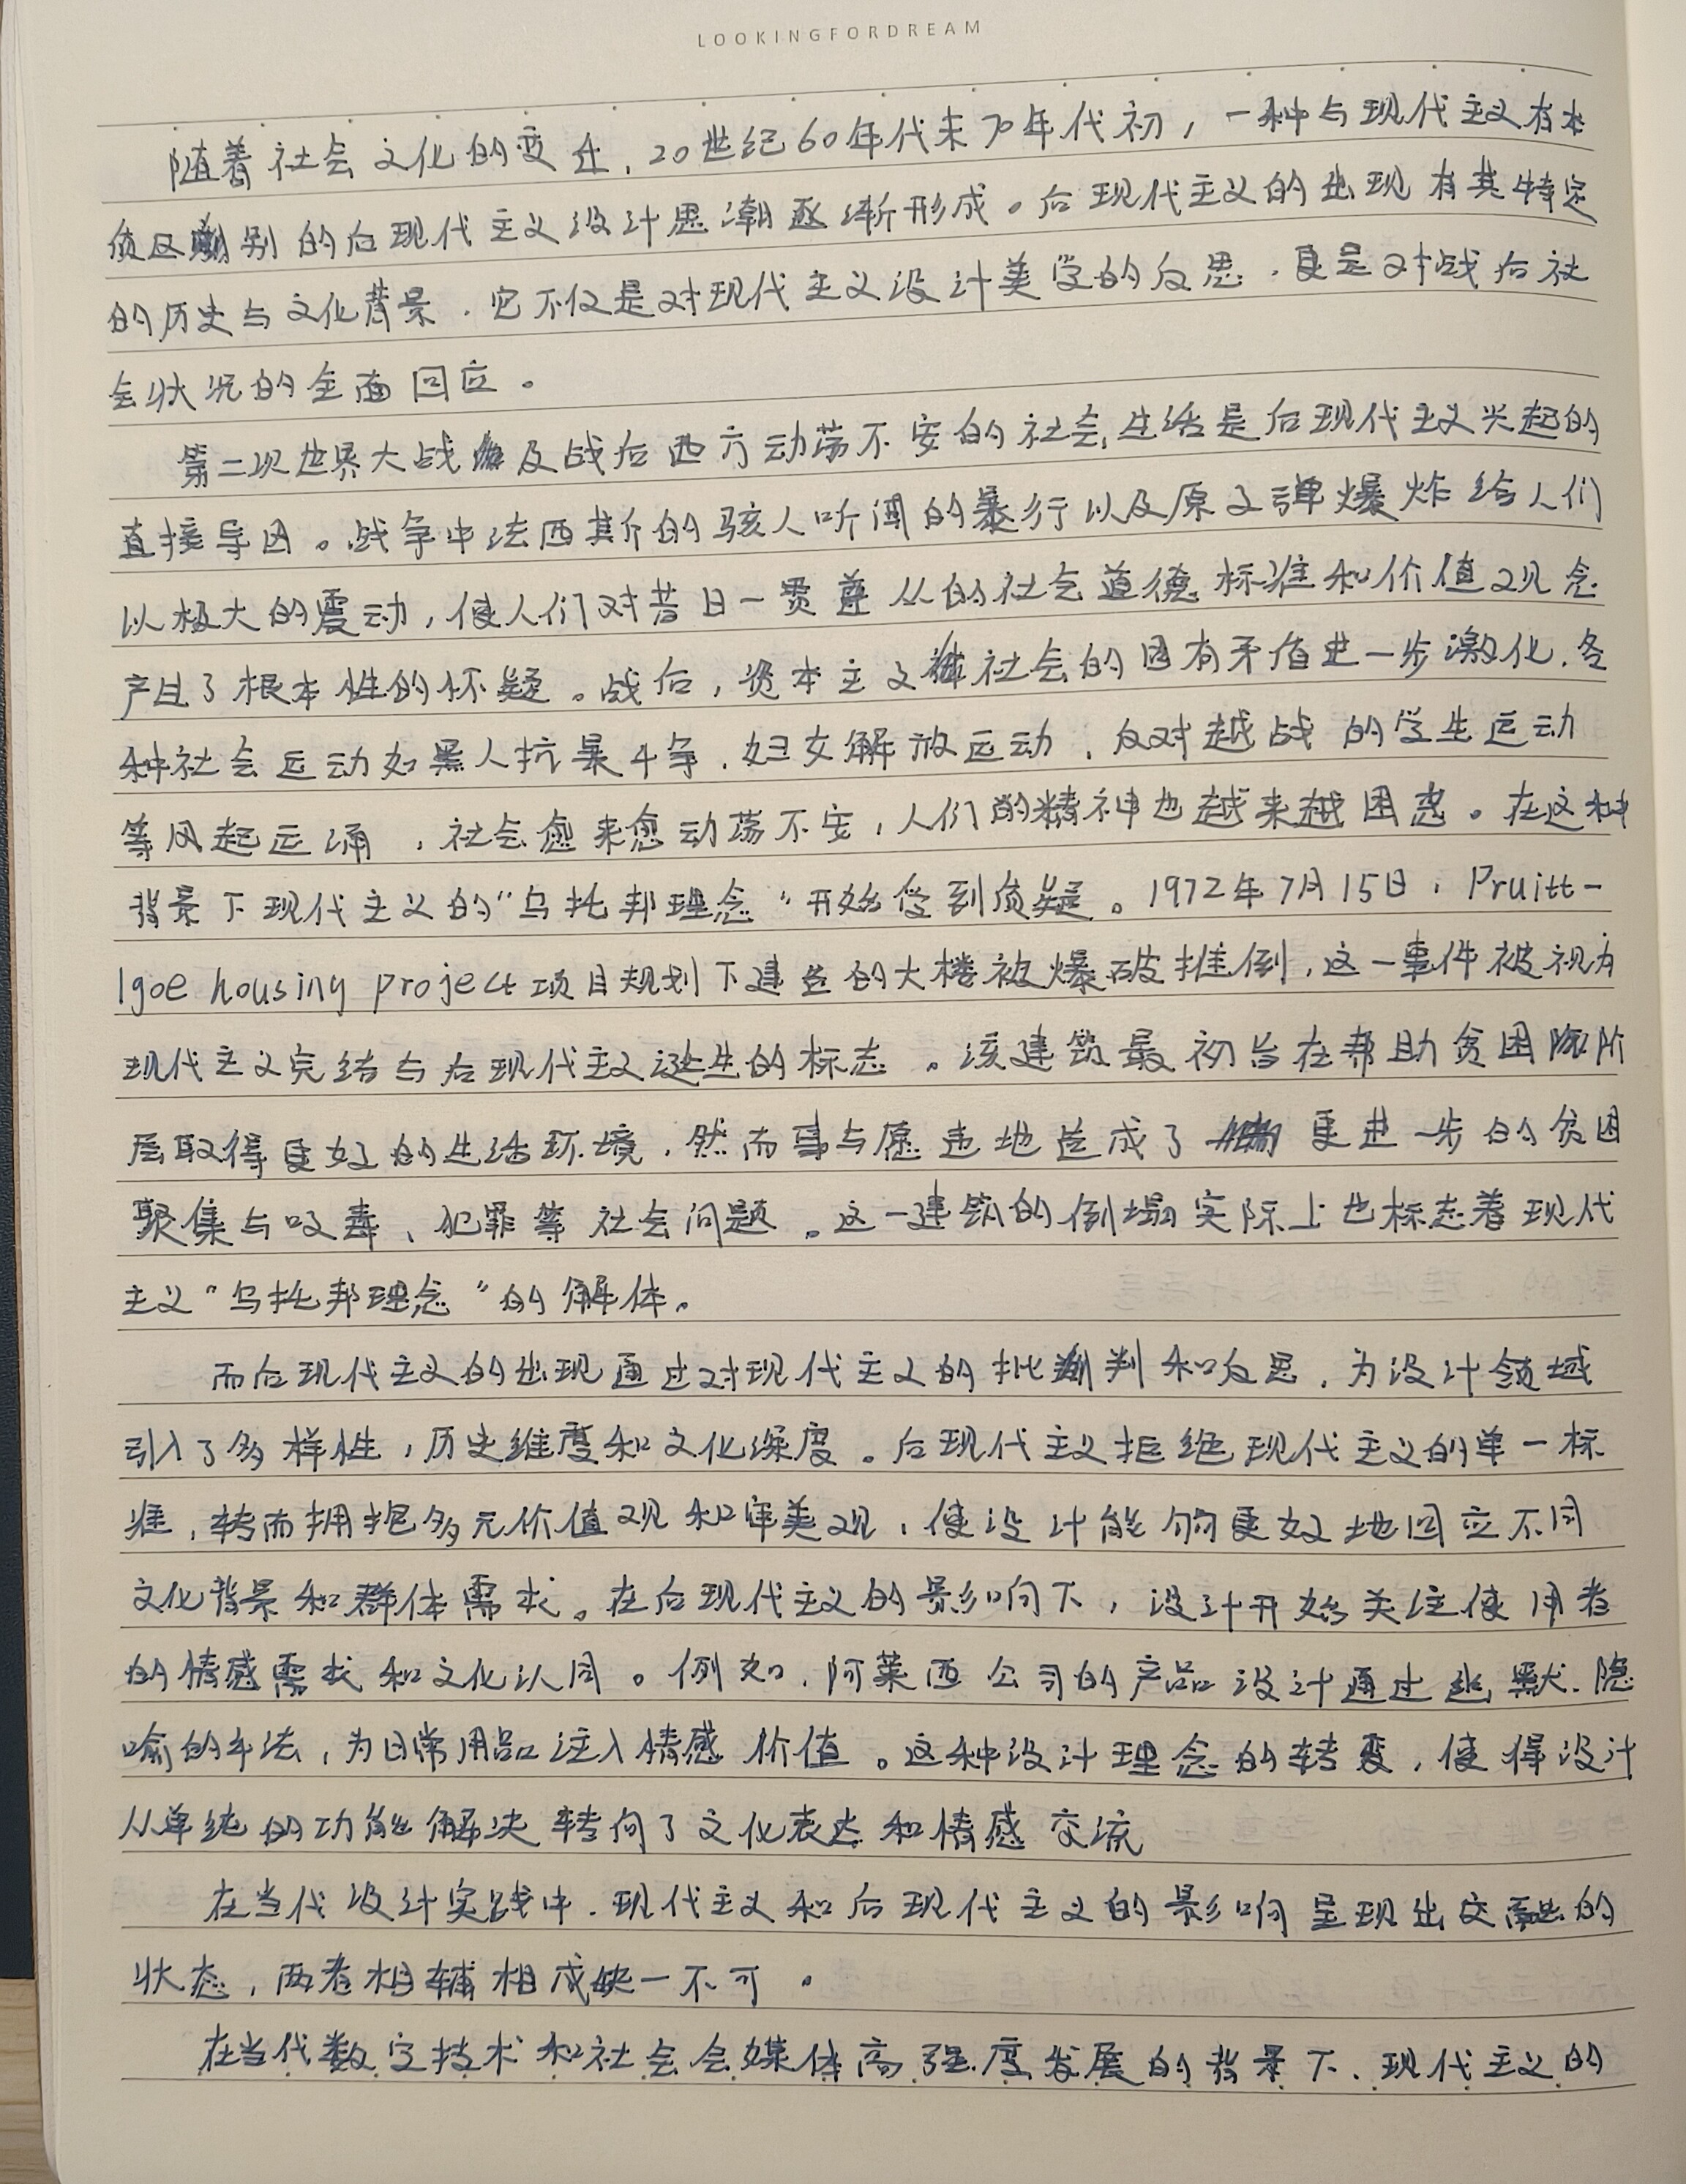 LOOKINGFORDREAM
随着社会文化的变迁,20世纪60年代末70年代初,一种与现代主义有本
质区别的后现代主义设计思潮逐渐形成。后现代主义的出现有其特定
的历史与文化背景,它不仅是对现代主义设计美学的反思,更是对战后社
会状况的全面回应。
第二次世界大战及战后西方动荡不安的社会生活是后现代主义兴起的
直接导因。战争中法西斯的骇人听闻的暴行以及原子弹爆炸给人们
以极大的震动,使人们对昔日一贯尊从的社会道德标准和价值观念
产生了根本性的怀疑。战后,资本主义社会的固有矛盾进一步激化,各
种社会运动如黑人抗暴斗争,妇女解放运动,反对越战的学生运动
等风起云涌,社会愈来愈动荡不安,人们的精神也越来越困惑。在这种
背景下现代主义的“乌托邦理念”开始受到质疑。1972年7月15日,Pruitt-
Igoe housing project项目规划下建造的大楼被爆破推倒,这一事件被视为
现代主义完结与后现代主义诞生的标志。该建筑最初旨在帮助贫困阶
层取得更好的生活环境,然而事与愿违地造成了更进一步的贫困
聚集与吸毒、犯罪等社会问题。这一建筑的倒塌实际上也标志着现代
主义“乌托邦理念”的解体。
而后现代主义的出现通过对现代主义的批判和反思,为设计领域
引入了多样性,历史维度和文化深度。后现代主义拒绝现代主义的单一标
准,转而拥抱多元价值观和审美观,使设计能够更好地回应不同
文化背景和群体需求。在后现代主义的影响下,设计开始关注使用者
的情感需求和文化认同。例如,阿莱西公司的产品设计通过幽默、隐
喻的手法,为日常用品注入情感价值。这种设计理念的转变,使得设计
从单纯的功能解决转向了文化表达和情感交流
在当代设计实践中,现代主义和后现代主义的影响呈现出交融的
状态,两者相辅相成缺一不可。
在当代数字技术和社会会媒体高强度发展的背景下,现代主义的